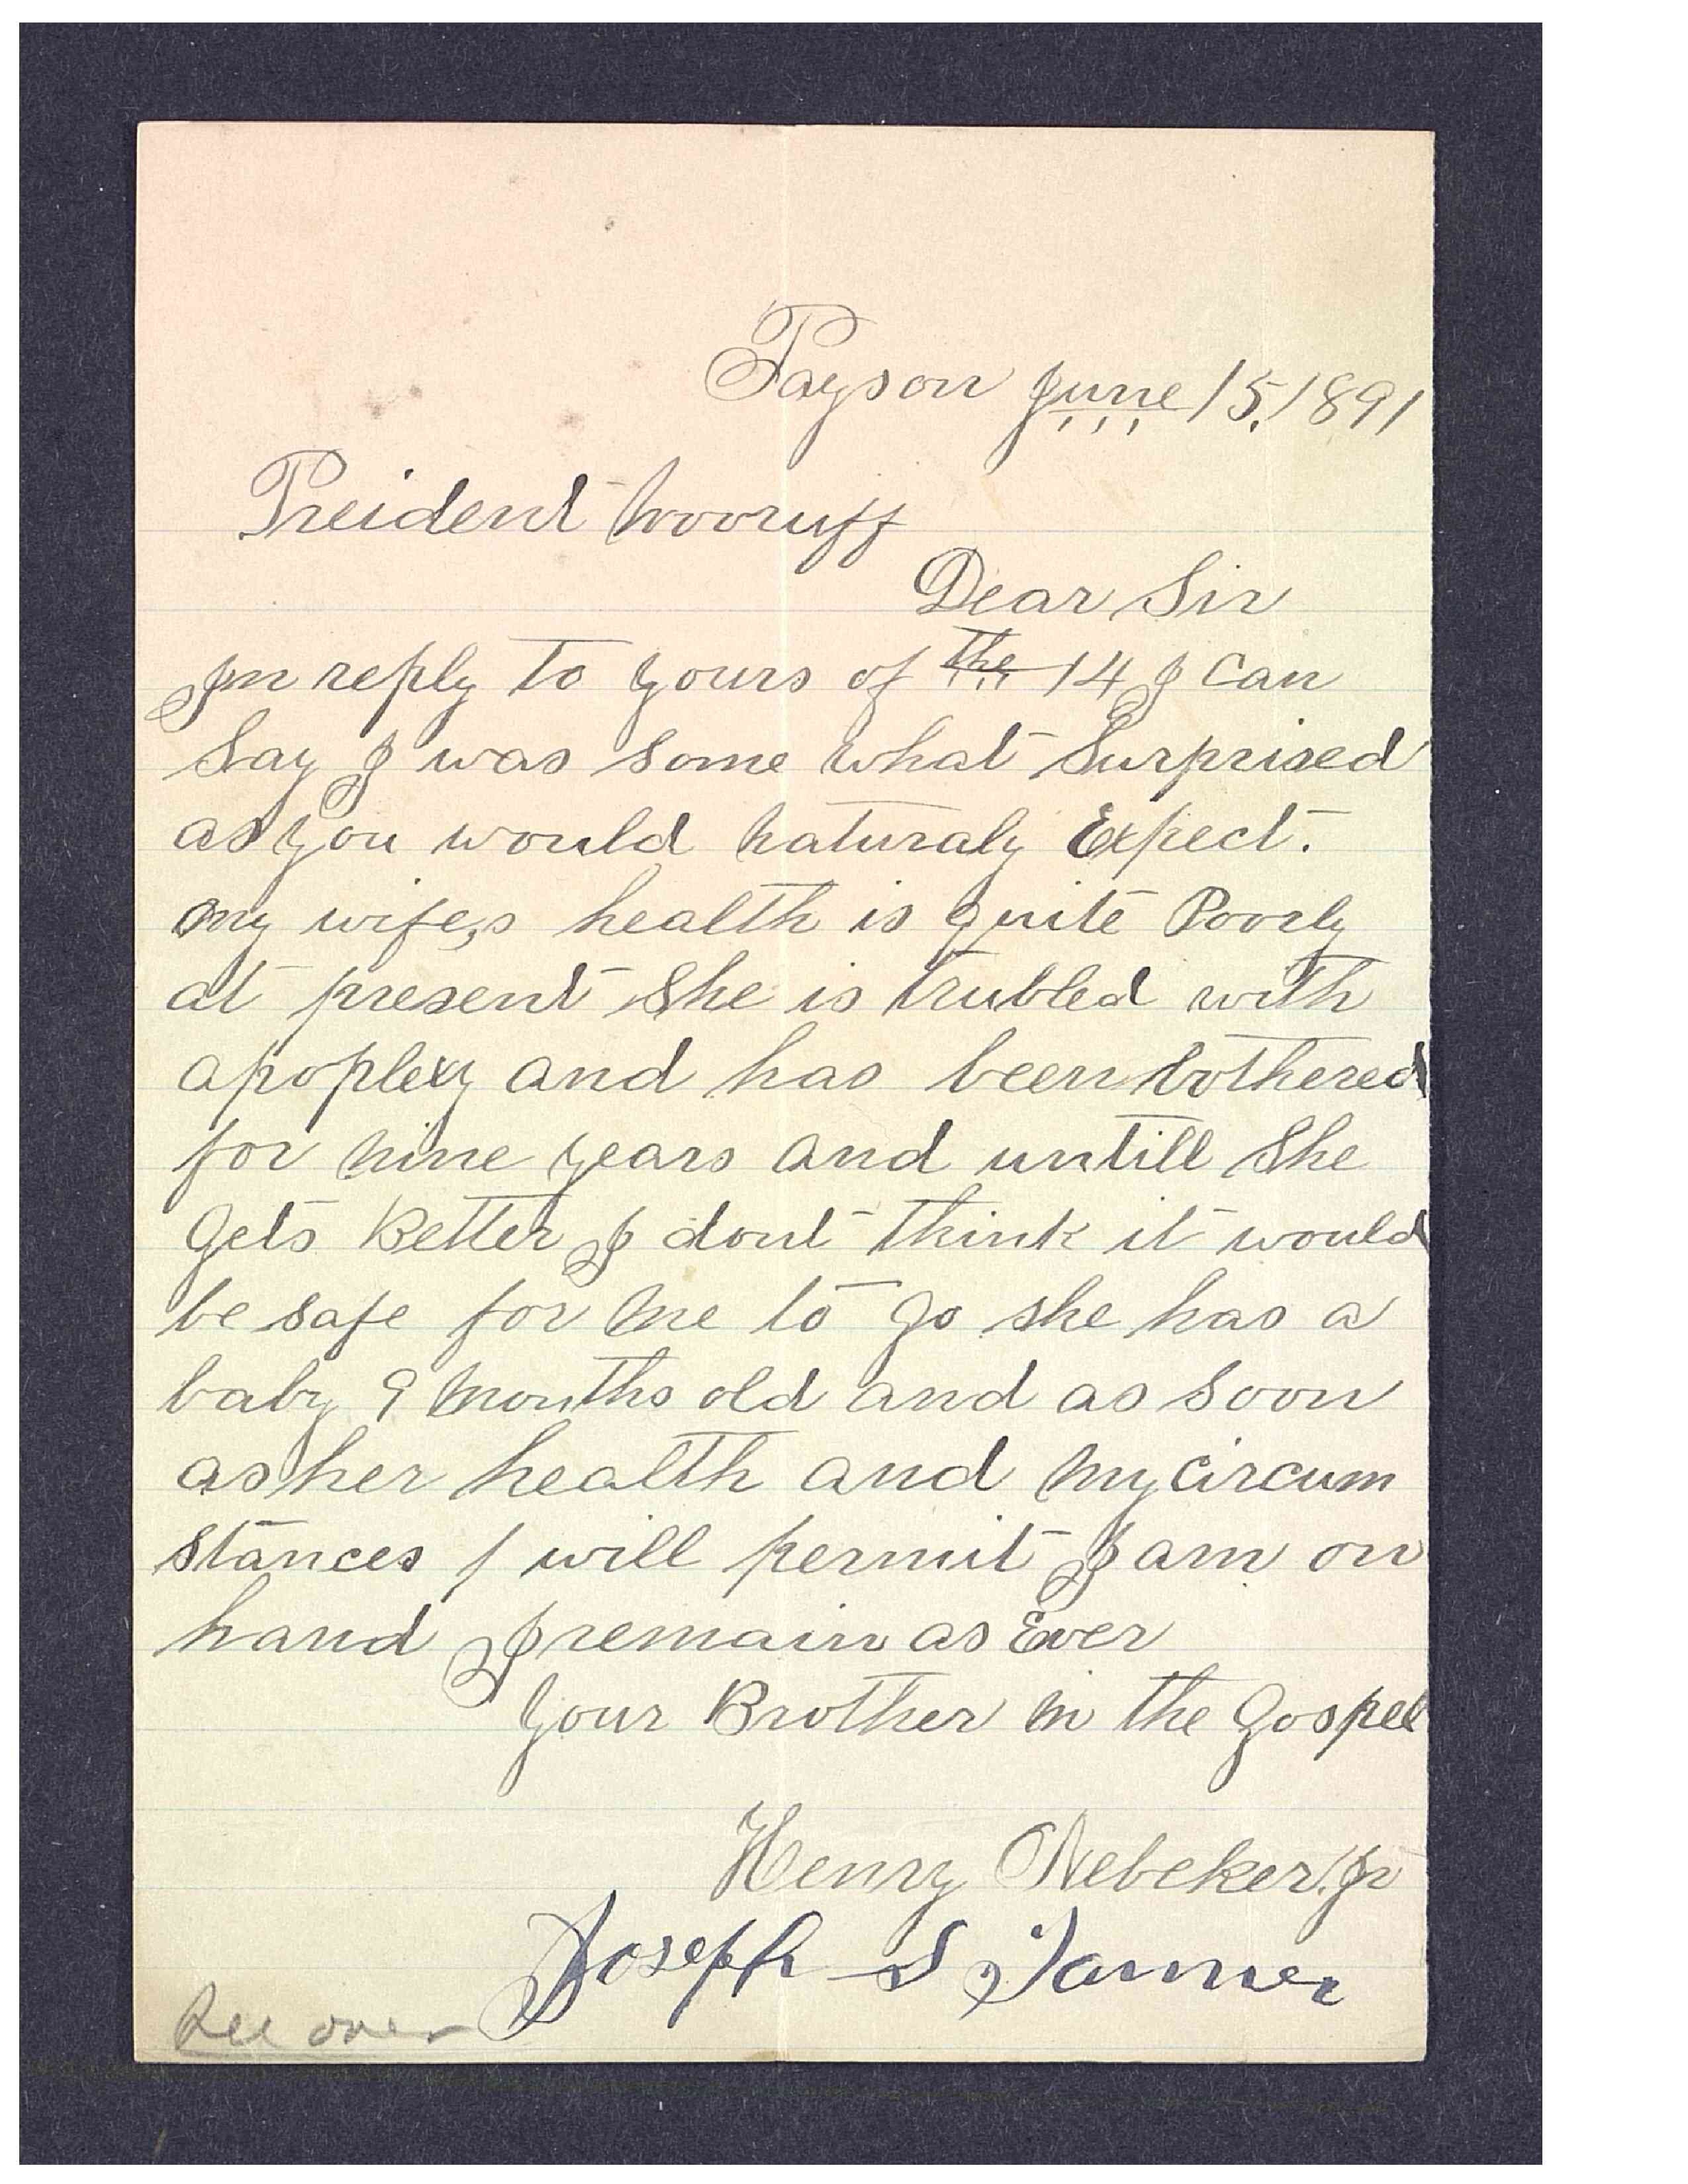 Payson June 15, 1891
Preident Wooruff
Dear Sir
In reply to yours of the 14 I can
Say I was some what Surprised
as you would naturaly Expect.
my wife,s health is quite Poorly
at present She is trubled with
apoplexy and has been bothered
for nine years and untill She
Gets Better I dont think it would
be safe for me to go she has a
baby 9 months old and as soon
as her health and my circum
stances / will permit I am on
hand I remain as Ever
Your Brother in the Gospel
Henry Nebeker. Jr
Joseph S Tanner
See over